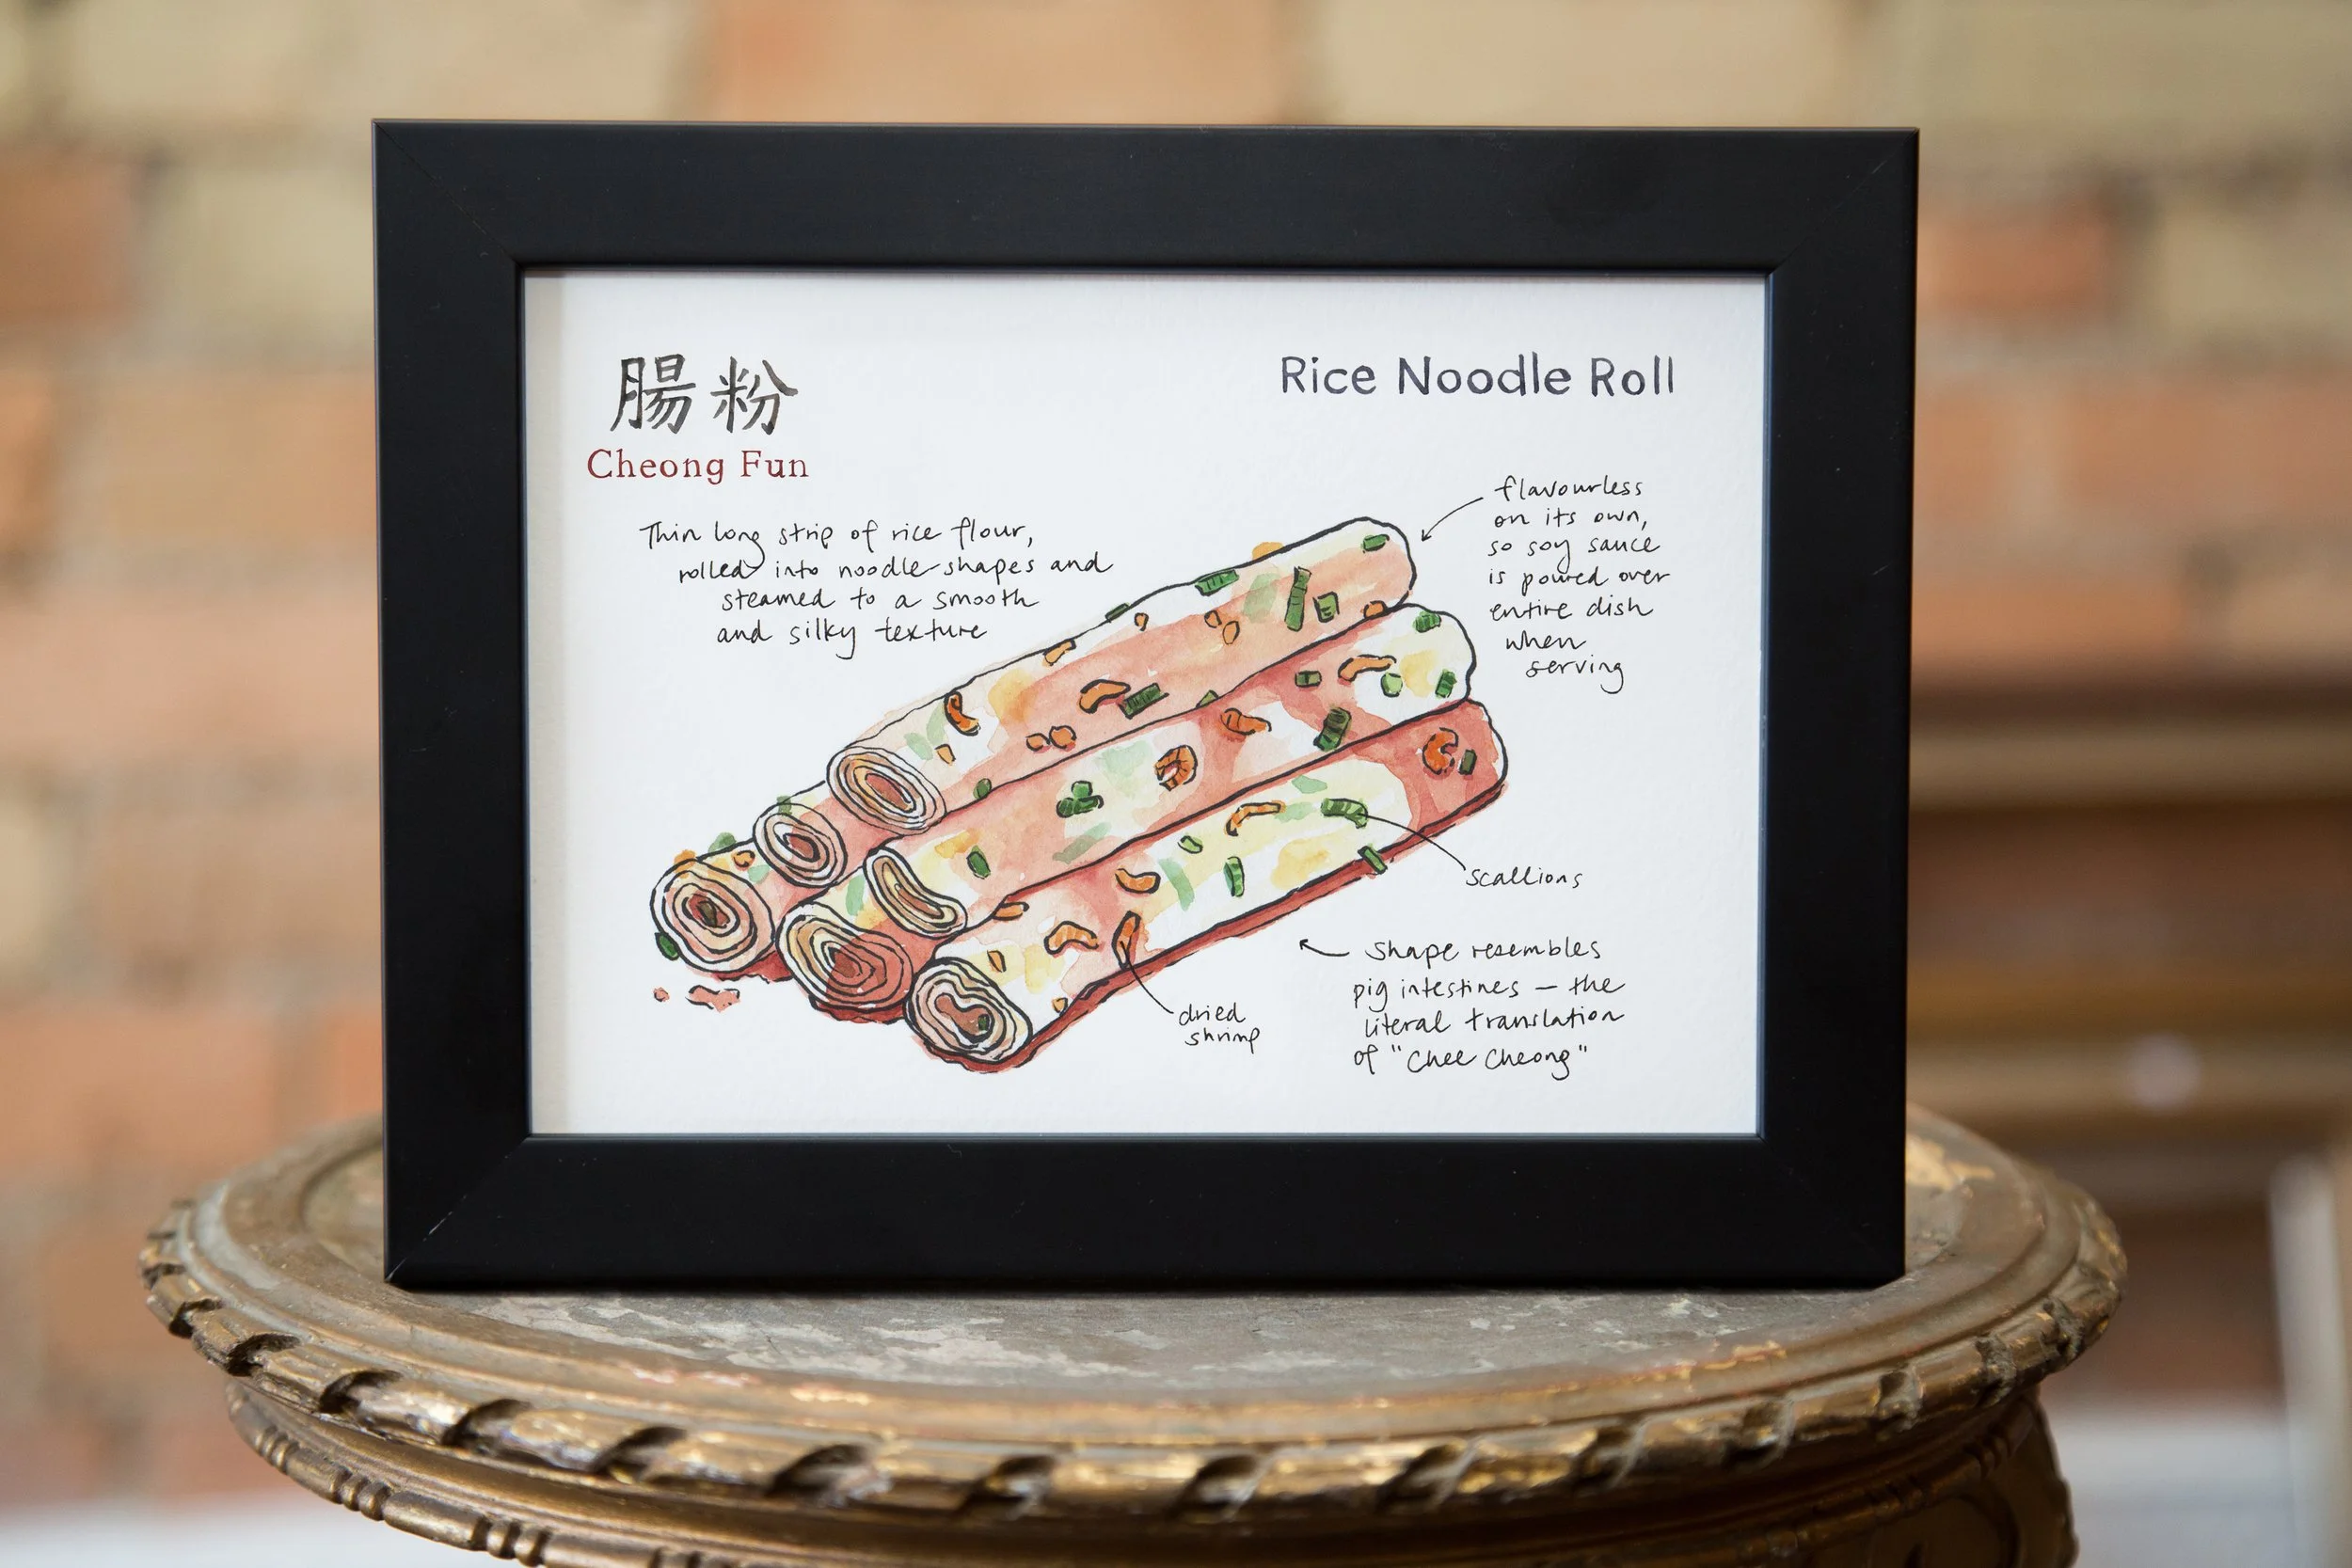 腸粉
Cheong Fun
Rice Noodle Roll
Thin long strip of rice flour,
rolled into noodle shapes and
steamed to a smooth
and silky texture
flavourless
on its own,
so soy sauce
is poured over
entire dish
when
serving
scallions
dried
shrimp
shape resembles
pig intestines – the
literal translation
of "Chee Cheong"